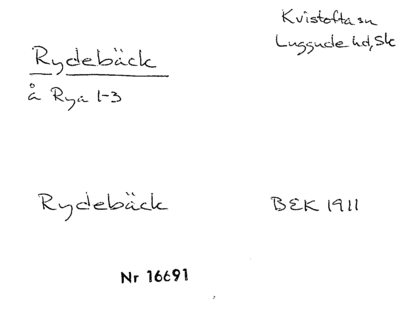 Kvistofta sn
Luggude hd, Sk
Rydebäck
å Rya 1-3
Rydebäck
BEK 1911
Nr 16691